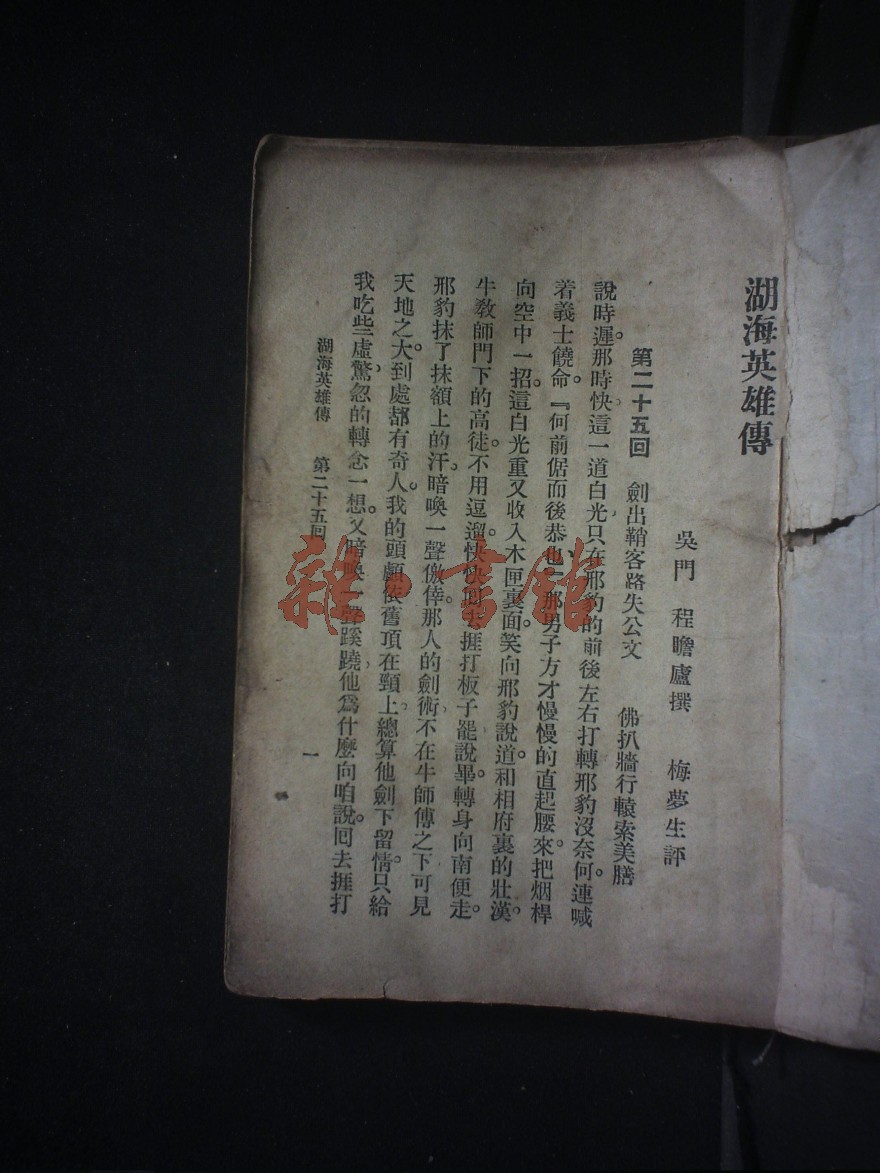 湖海英雄傳
吳門　程瞻廬撰　梅夢生評
第二十五回　劍出鞘客路失公文　佛扒牆行轅索美膳
說時遲。那時快。這一道白光只在邢豹的前後左右打轉。邢豹沒奈何。連喊
着義士饒命。『何前倨而後恭也』那男子方才慢慢的直起腰來。把烟桿
向空中一招。這白光重又收入木匣裏面。笑向邢豹說道。和相府裏的壯漢。
牛敎師門下的高徒。不用逗遛。快快回去捱打板子罷。說畢。轉身向南便走。
邢豹抹了抹額上的汗。暗喚一聲儌倖。那人的劍術。不在牛師傅之下。可見
天地之大。到處都有奇人。我的頭顱依舊頂在頸上。總算他劍下留情。只給
我吃些虛驚。忽的轉念一想。又暗喚一聲蹊蹺。他爲什麼向咱說。囘去捱打
湖海英雄傳　第二十五回
一
雜·書館